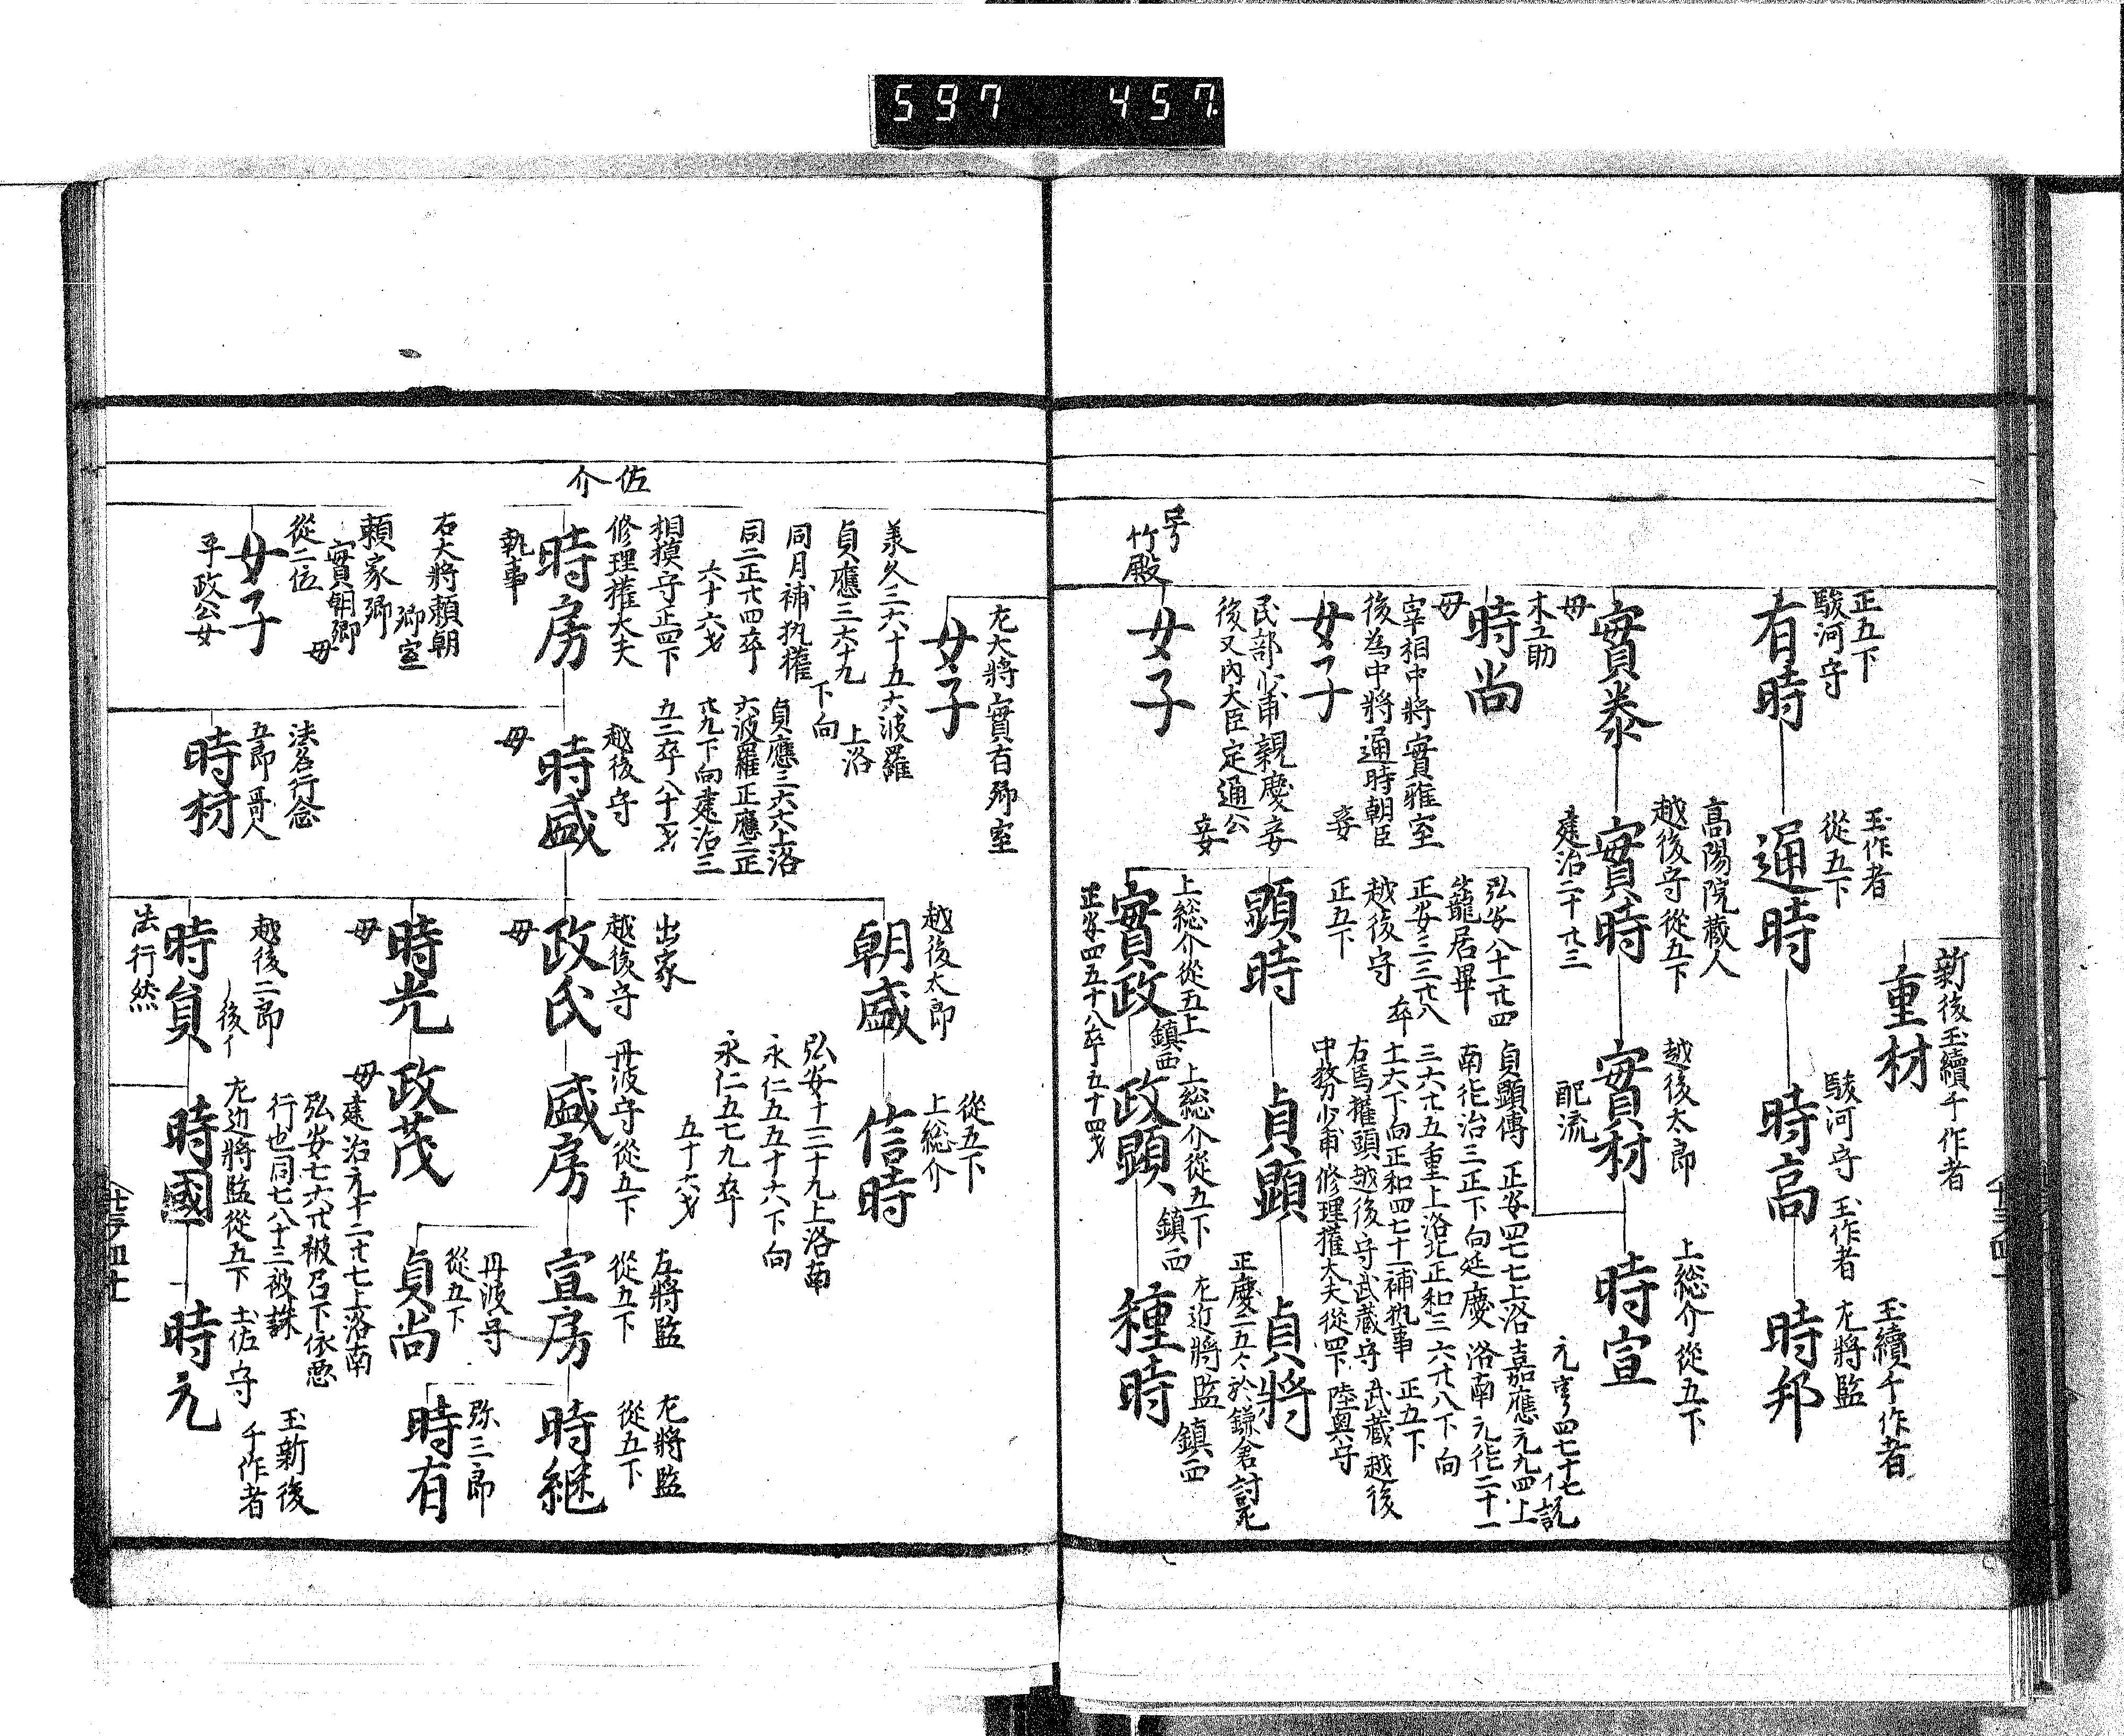 597 457
新後玉續千作者
重材
正五下
駿河守
有時
玉作者
從五下
通時
駿河守 玉作者
時高
玉續千作者
左將監
時邦
實泰
母
高陽院藏人
越後守從五下
實時
建治二十廿三
越後太郎
實材
配流
上総介從五下
時宣
木工助
時尚
母
宰相中將實雅室
後為中將通時朝臣
妾
女子
民部少甫親慶妾
後又内大臣定通公
妾
女子
号
竹殿
弘安八十一廿四
籠居畢
正安三三廿八
卒
越後守
正五下
顕時
元亨四七十七イ説
貞顕傳 正安四七七上洛 嘉應元九四上
南延治三正下向延慶 洛南元延二十一
三六廿五重上洛北正和三六廿八下向
十一六下向正和四七十一補执事 正五下
右馬權頭越後守武藏守武藏越後
中務少甫修理權大夫從四下 陸奥守
貞顕
貞將
正慶二五々於鎌倉討死
上総介從五上
實政
鎮西
正安四五十八卒五十四才
上総介從五下
政顕
鎮西
左近將監
種時
鎮西
左大將實有卿室
女子
佐介
承久三六十五六波羅
貞應三六十九
上洛
下向
同月補执權
同二正廿四卒
六十六才
相摸守正四下
修理權大夫
時房
執事
右大將頼朝
卿室
頼家卿
實朝卿
母
從二位
女子
平政公女
貞應三六六上洛
六波羅正應二正
廿九下向建治三
五二卒八十一才
越後守
時盛
母
法名行念
五郎哥人
時材
越後太郎
朝盛
從五下
上総介
信時
出家
越後守
政氏
母
弘安十二十九上洛南
永仁五五十六下向
永仁五七九卒
五十六才
丹波守從五下
盛房
左將監
從五下
宣房
左將監
從五下
時継
時光
母
政茂
丹波守
從五下
貞尚
弥三郎
時有
越後二郎
時貞
法行然
母建治元十二廿七上洛南
弘安七六廿被召下依悪
行也同七八十三被誅
左近將監從五下
時國
土佐守
時元
玉新後
千作者